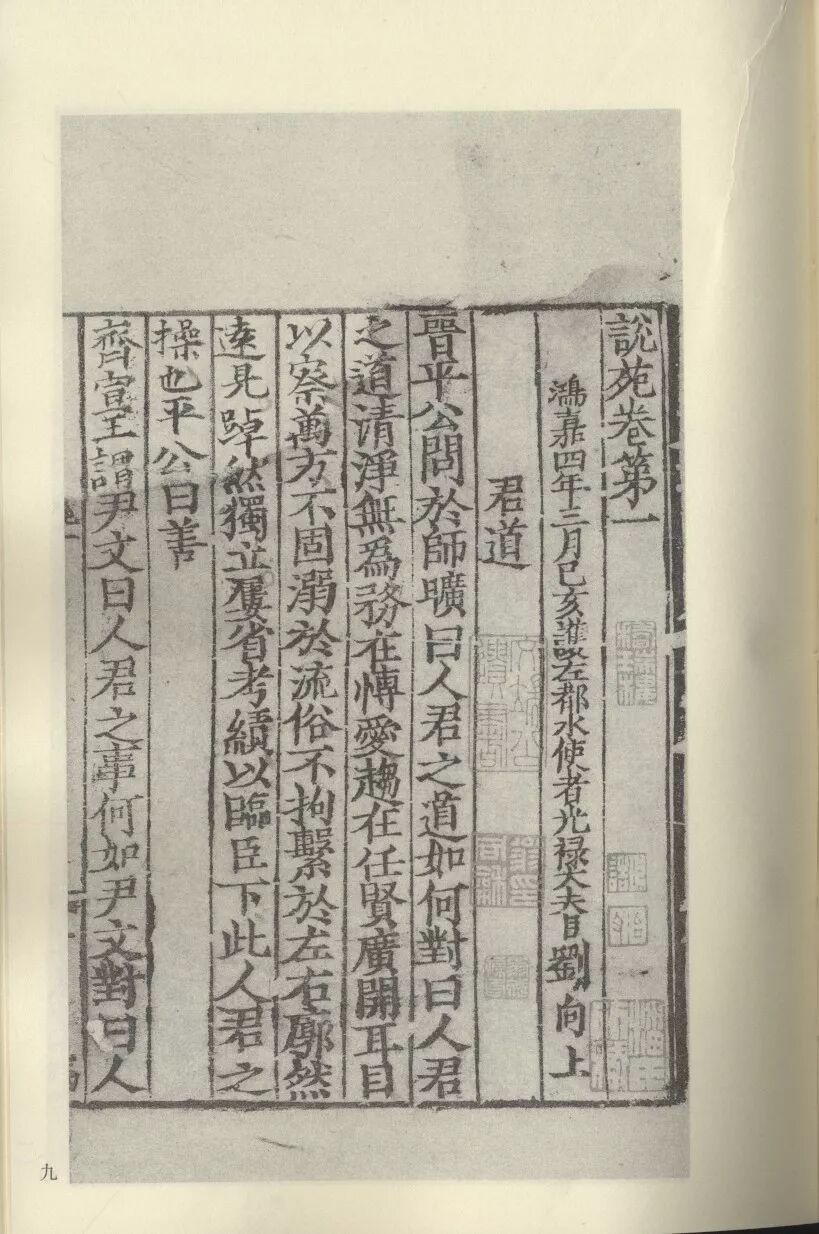 說苑卷第一
鴻嘉四年三月己亥護左都水使者光祿大夫臣劉向上
君道
晉平公問於師曠曰人君之道如何對曰人君
之道清淨無為務在愽愛趨在任賢廣開耳目
以察萬方不固溺於流俗不拘繫於左右廓然
遠見踔然獨立屢省考績以臨臣下此人君之
操也平公曰善
齊宣王謂尹文曰人君之事何如尹文對曰人
九